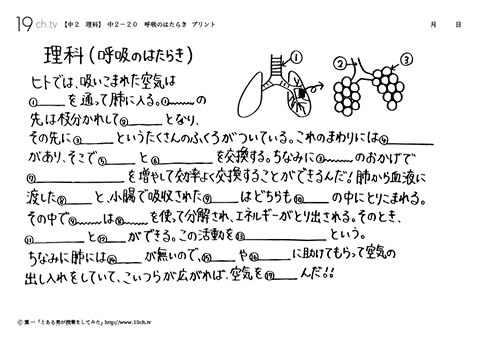 19ch.tv 【中2 理科】 中2-20 呼吸のはたらき プリント 月 日
理科(呼吸のはたらき)
① ② ③
ヒトでは、吸いこまれた空気は
①____を通って肺に入る。①~~~~の
先は枝分かれして②______となり、
その先に③______というたくさんのふくろがついている。これのまわりには④______
があり、そこで⑤____と⑥______を交換する。ちなみに③~~~~のおかげで
⑦____________を増やして効率よく交換することができるんだ!肺から血液に
渡した⑧____と、小腸で吸収された⑨____はどちらも⑩____の中にとりこまれる。
その中で⑨~~~~は⑧____を使って分解され、エネルギーがとり出される。そのとき、
⑪________と⑫____ができる。この活動を⑬____________という。
ちなみに肺には⑭____が無いので、⑮____や⑯____に助けてもらって空気の
出し入れをしていて、こいつらが広がれば、空気を⑰____んだ!!
©葉一「とある男が授業をしてみた」http://www.19ch.tv